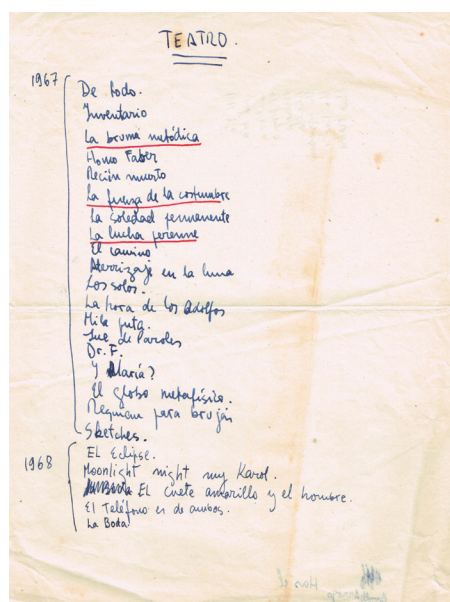 TEATRO.
1967
De todo.
Inventario
La bruma metódica
Homo Faber
Recién muerto
La fuerza de la costumbre
La soledad permanente
La lucha perenne
El camino
Aterrizaje en la luna
Los solos.
La hora de los Adolfos
Mile puta.
Jue de Paroles
Dr. F.
Y María?
El globo metafísico.
Requiem para brujas
Sketches.
1968
EL Eclipse.
Moonlight night my Karol.
EL cuete amarillo y el hombre.
El Teléfono es de ambos.
La Boda